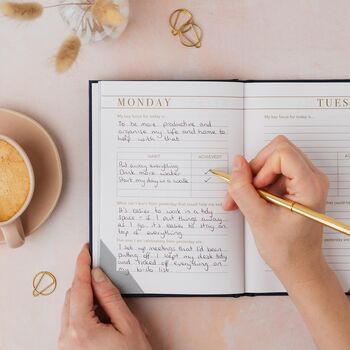 MONDAY
My key focus for today is...
To be more productive and
organise my life and home to
help with that
HABIT ACHIEVED?
Put away everything
Drink more water
Start my day in a walk
What can I learn from yesterday going into today...
It's easier to work in a tidy
space & if I put things away
as I go, it's easier to stay on
top of everything
I set up meetings that I'd been
putting off. I kept my desk tidy
and ticked off everything on
my to-do list.
TUES
My key focus for today is...
HABIT